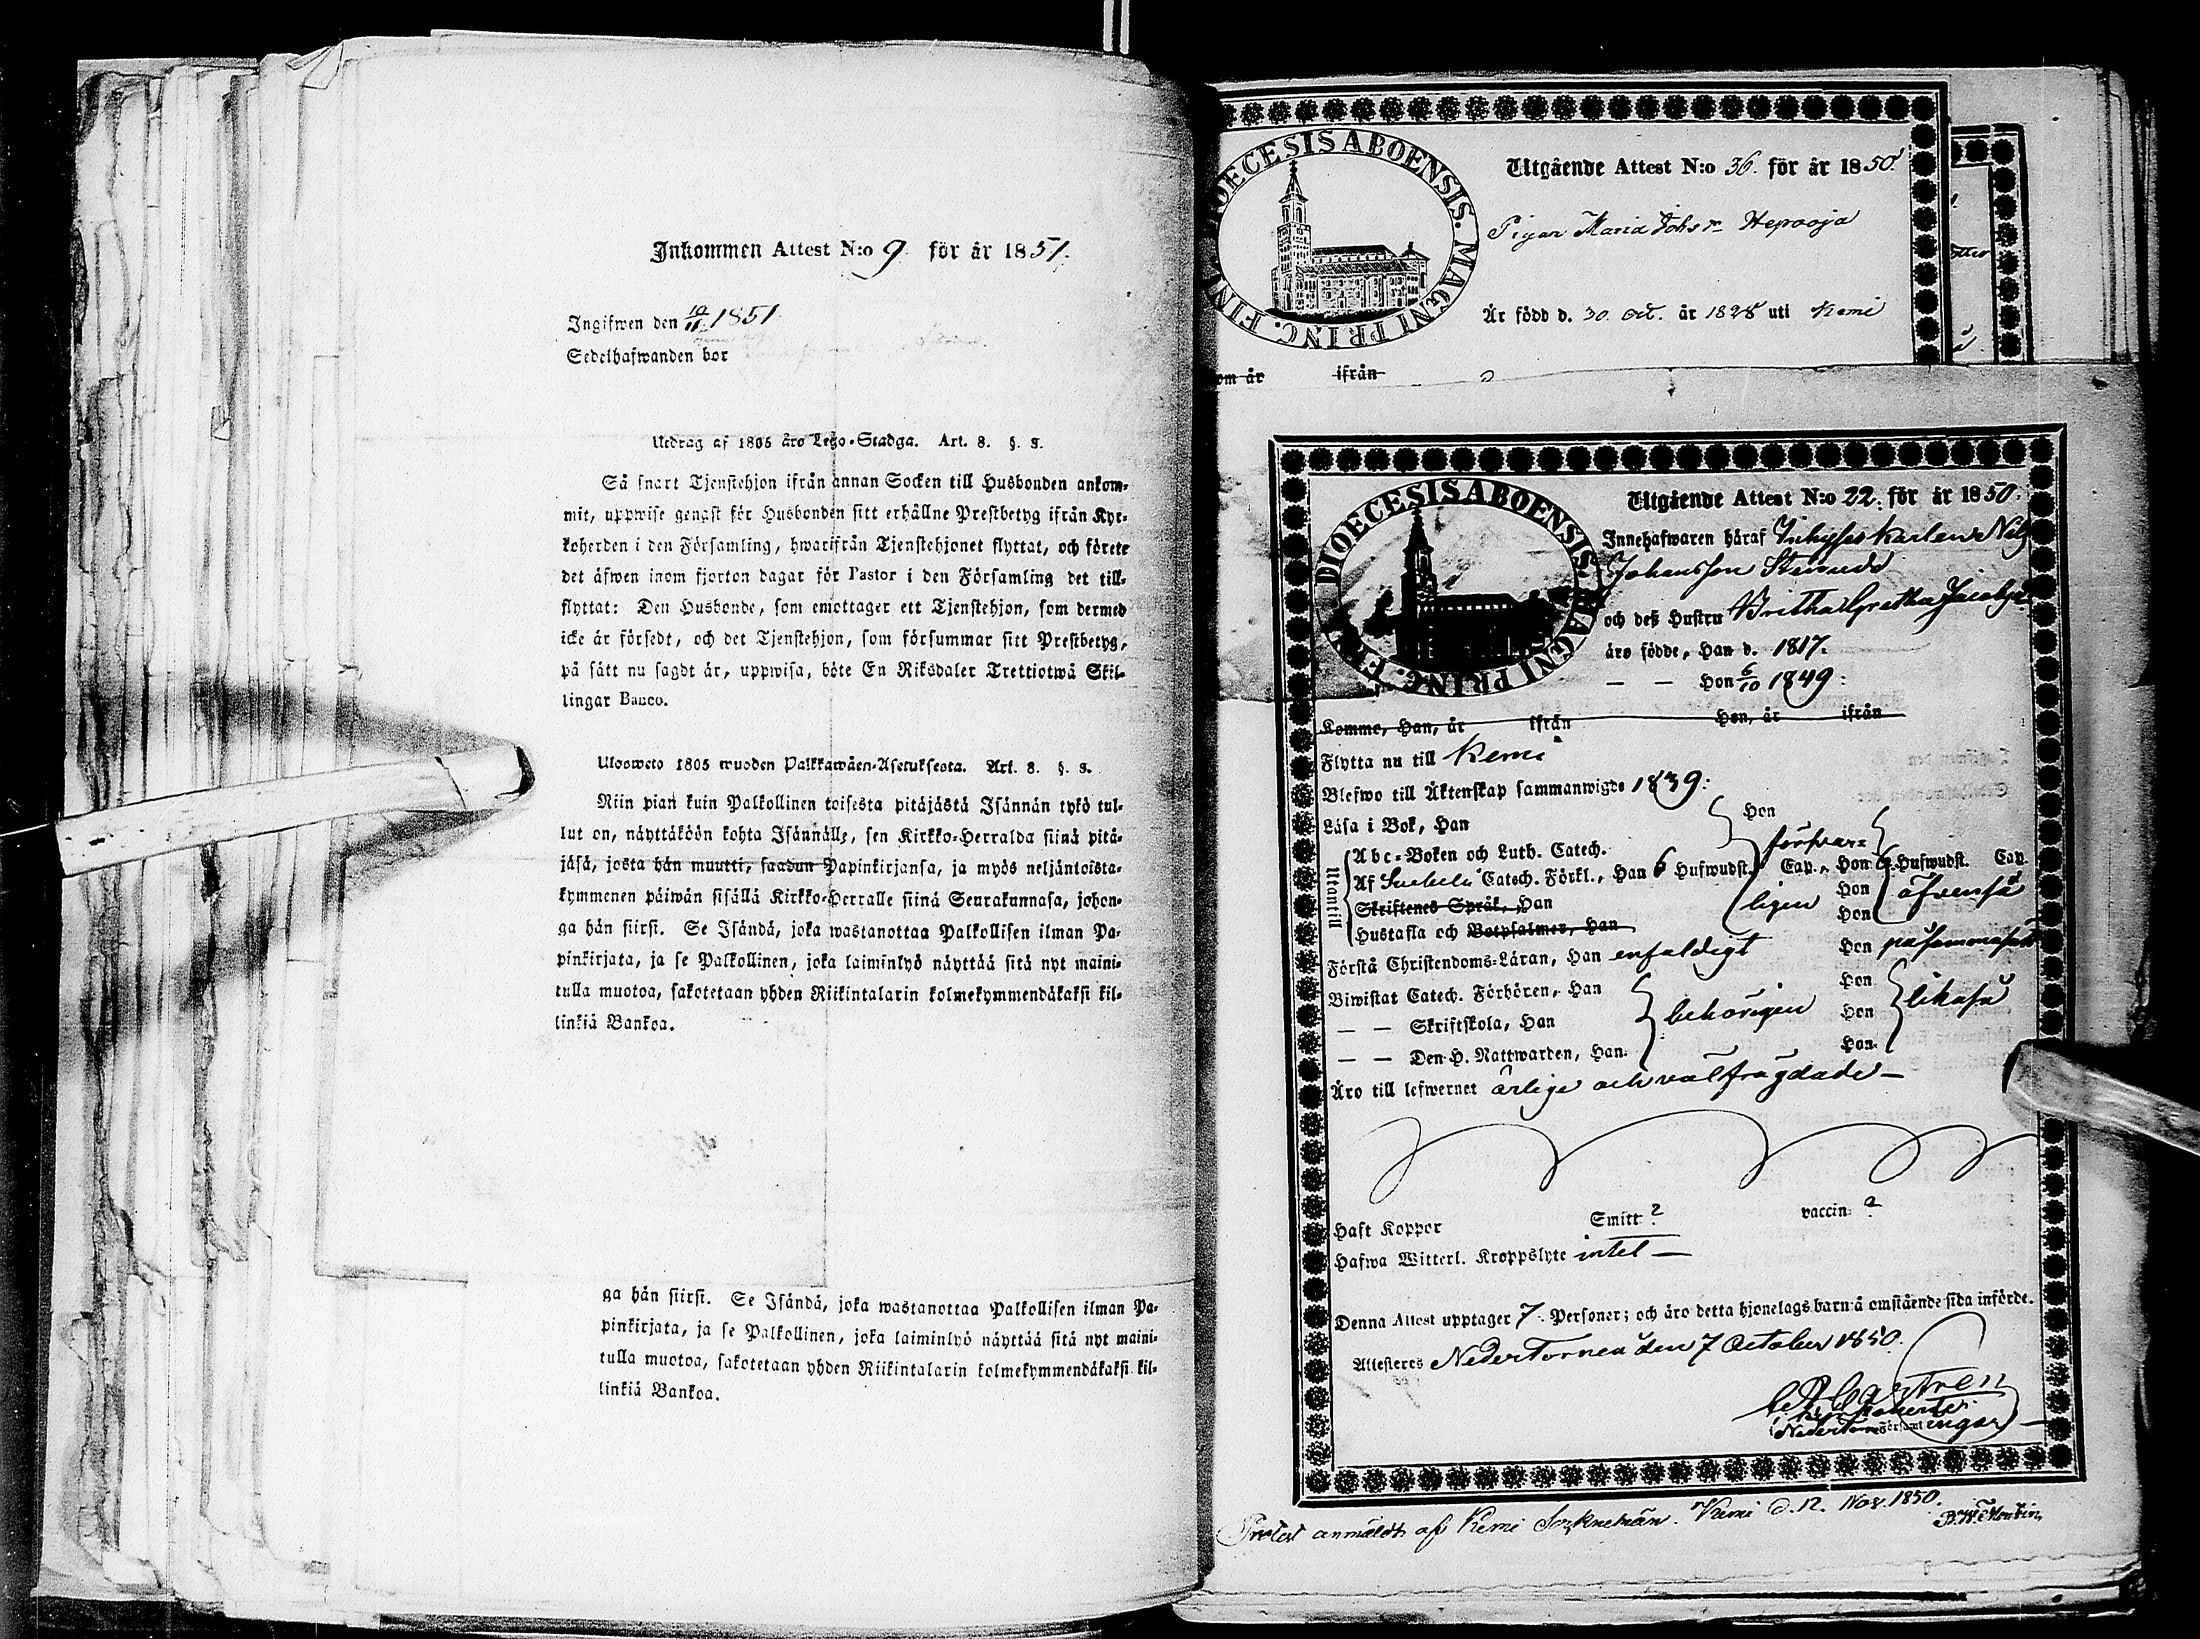 Inkommen Attest N:o 9 för år 1851.
Ingifwen den 10/11 1851
Sedelhafwanden bor
Utdrag af 1805 års Lego-Stadga. Art. 8. §. 3.
Så snart Tjenstehjon ifrån annan Socken till Husbonden ankom-
mit, uppwise genast för Husbonden sitt erhållne Prestbetyg ifrån Kyr-
koherden i den Församling, hwarifrån Tjenstehjonet flyttat, och förete
det äfwen inom fjorton dagar för Pastor i den Församling det till-
flyttat: Den Husbonde, som emottager ett Tjenstehjon, som dermed
icke är försedt, och det Tjenstehjon, som försummar sitt Prestbetyg,
på sätt nu sagdt är, uppwisa, böte En Riksdaler Trettiotwå Skil-
lingar Banco.
Uloosweto 1805 wuoden Palkkawäen-Asetuksesta. Art. 8. §. 3.
Niin pian kuin Palkollinen toisesta pitäjästä Isännän tykö tul-
lut on, näyttäköön kohta Isännälle, sen Kirkko-Herralda siinä pitä-
jäsä, josta hän muutti, saadun Papinkirjansa, ja myös neljäntoista-
kymmenen päiwän sisällä Kirkko-Herralle siinä Seurakunnasa, johon-
ga hän siirsi. Se Isändä, joka wastanottaa Palkollisen ilman Pa-
pinkirjata, ja se Palkollinen, joka laiminlyö näyttää sitä nyt maini-
tulla muotoa, sakotetaan yhden Riikintalarin kolmekymmendäkaksi kil-
linkiä Bankoa.
ga hän siirsi. Se Isändä, joka wastanottaa Palkollisen ilman Pa-
pinkirjata, ja se Palkollinen, joka laiminlyö näyttää sitä nyt maini-
tulla muotoa, sakotetaan yhden Riikintalarin kolmekymmendäkaksi kil-
linkiä Bankoa.
DIOECESIS ABOENSIS. MAGNI PRINC. FIN
Utgående Attest N:o 36. för år 1850.
Pigan Maria Johsr Heprooja
Är född d. 30. Oct. år 1828 uti Kemi
om år ifrån
DIOECESIS ABOENSIS. MAGNI PRINC. FIN
Utgående Attest N:o 22. för år 1850.
Innehafwaren häraf Inhyses karlen Nils
Johansson Stenudd
och deß Hustru Britha Gretha Jacobsd
äro födde, Han d. 1817.
— — Hon 6/10 1849:
Komme, Han, år ifrån Hon, år ifrån
Flytta nu till Kemi
Blefwo till Äktenskap sammanwigde 1839:
Läsa i Bok, Han Hon
Utantill
Abc-Boken och Luth. Catech. försvar-
Af Svebelii Catech. Förkl., Han 6 Hufwudst. Cap., Hon 6 Hufwudst. Cap.
Skriftenes Språk, Han ligen Hon äfvenså
Hustafla och Botpsalmer, Han Hon
Förstå Christendoms-Läran, Han enfaldigt Hon på samma sätt
Biwistat Catech. Förhören, Han Hon
— — Skriftskola, Han behörigen Hon likaså
— — Den H. Nattwarden, Han Hon
Äro till lefwernet ärlige och välfrägdade —
Haft Koppor Smitt ? vaccin: ?
Hafwa Witterl. Kroppslyte intet —
Denna Attest upptager 7 Personer; och äro detta hjonelags barn å omstående sida införde.
Attesteres NederTorneå den 7 October 1850.
Castren
Kyrkoherde i
NederTorneå Församlingar
Protest anmäldt af Kemi Socknemän. Kemi d. 12. Nov. 1850.